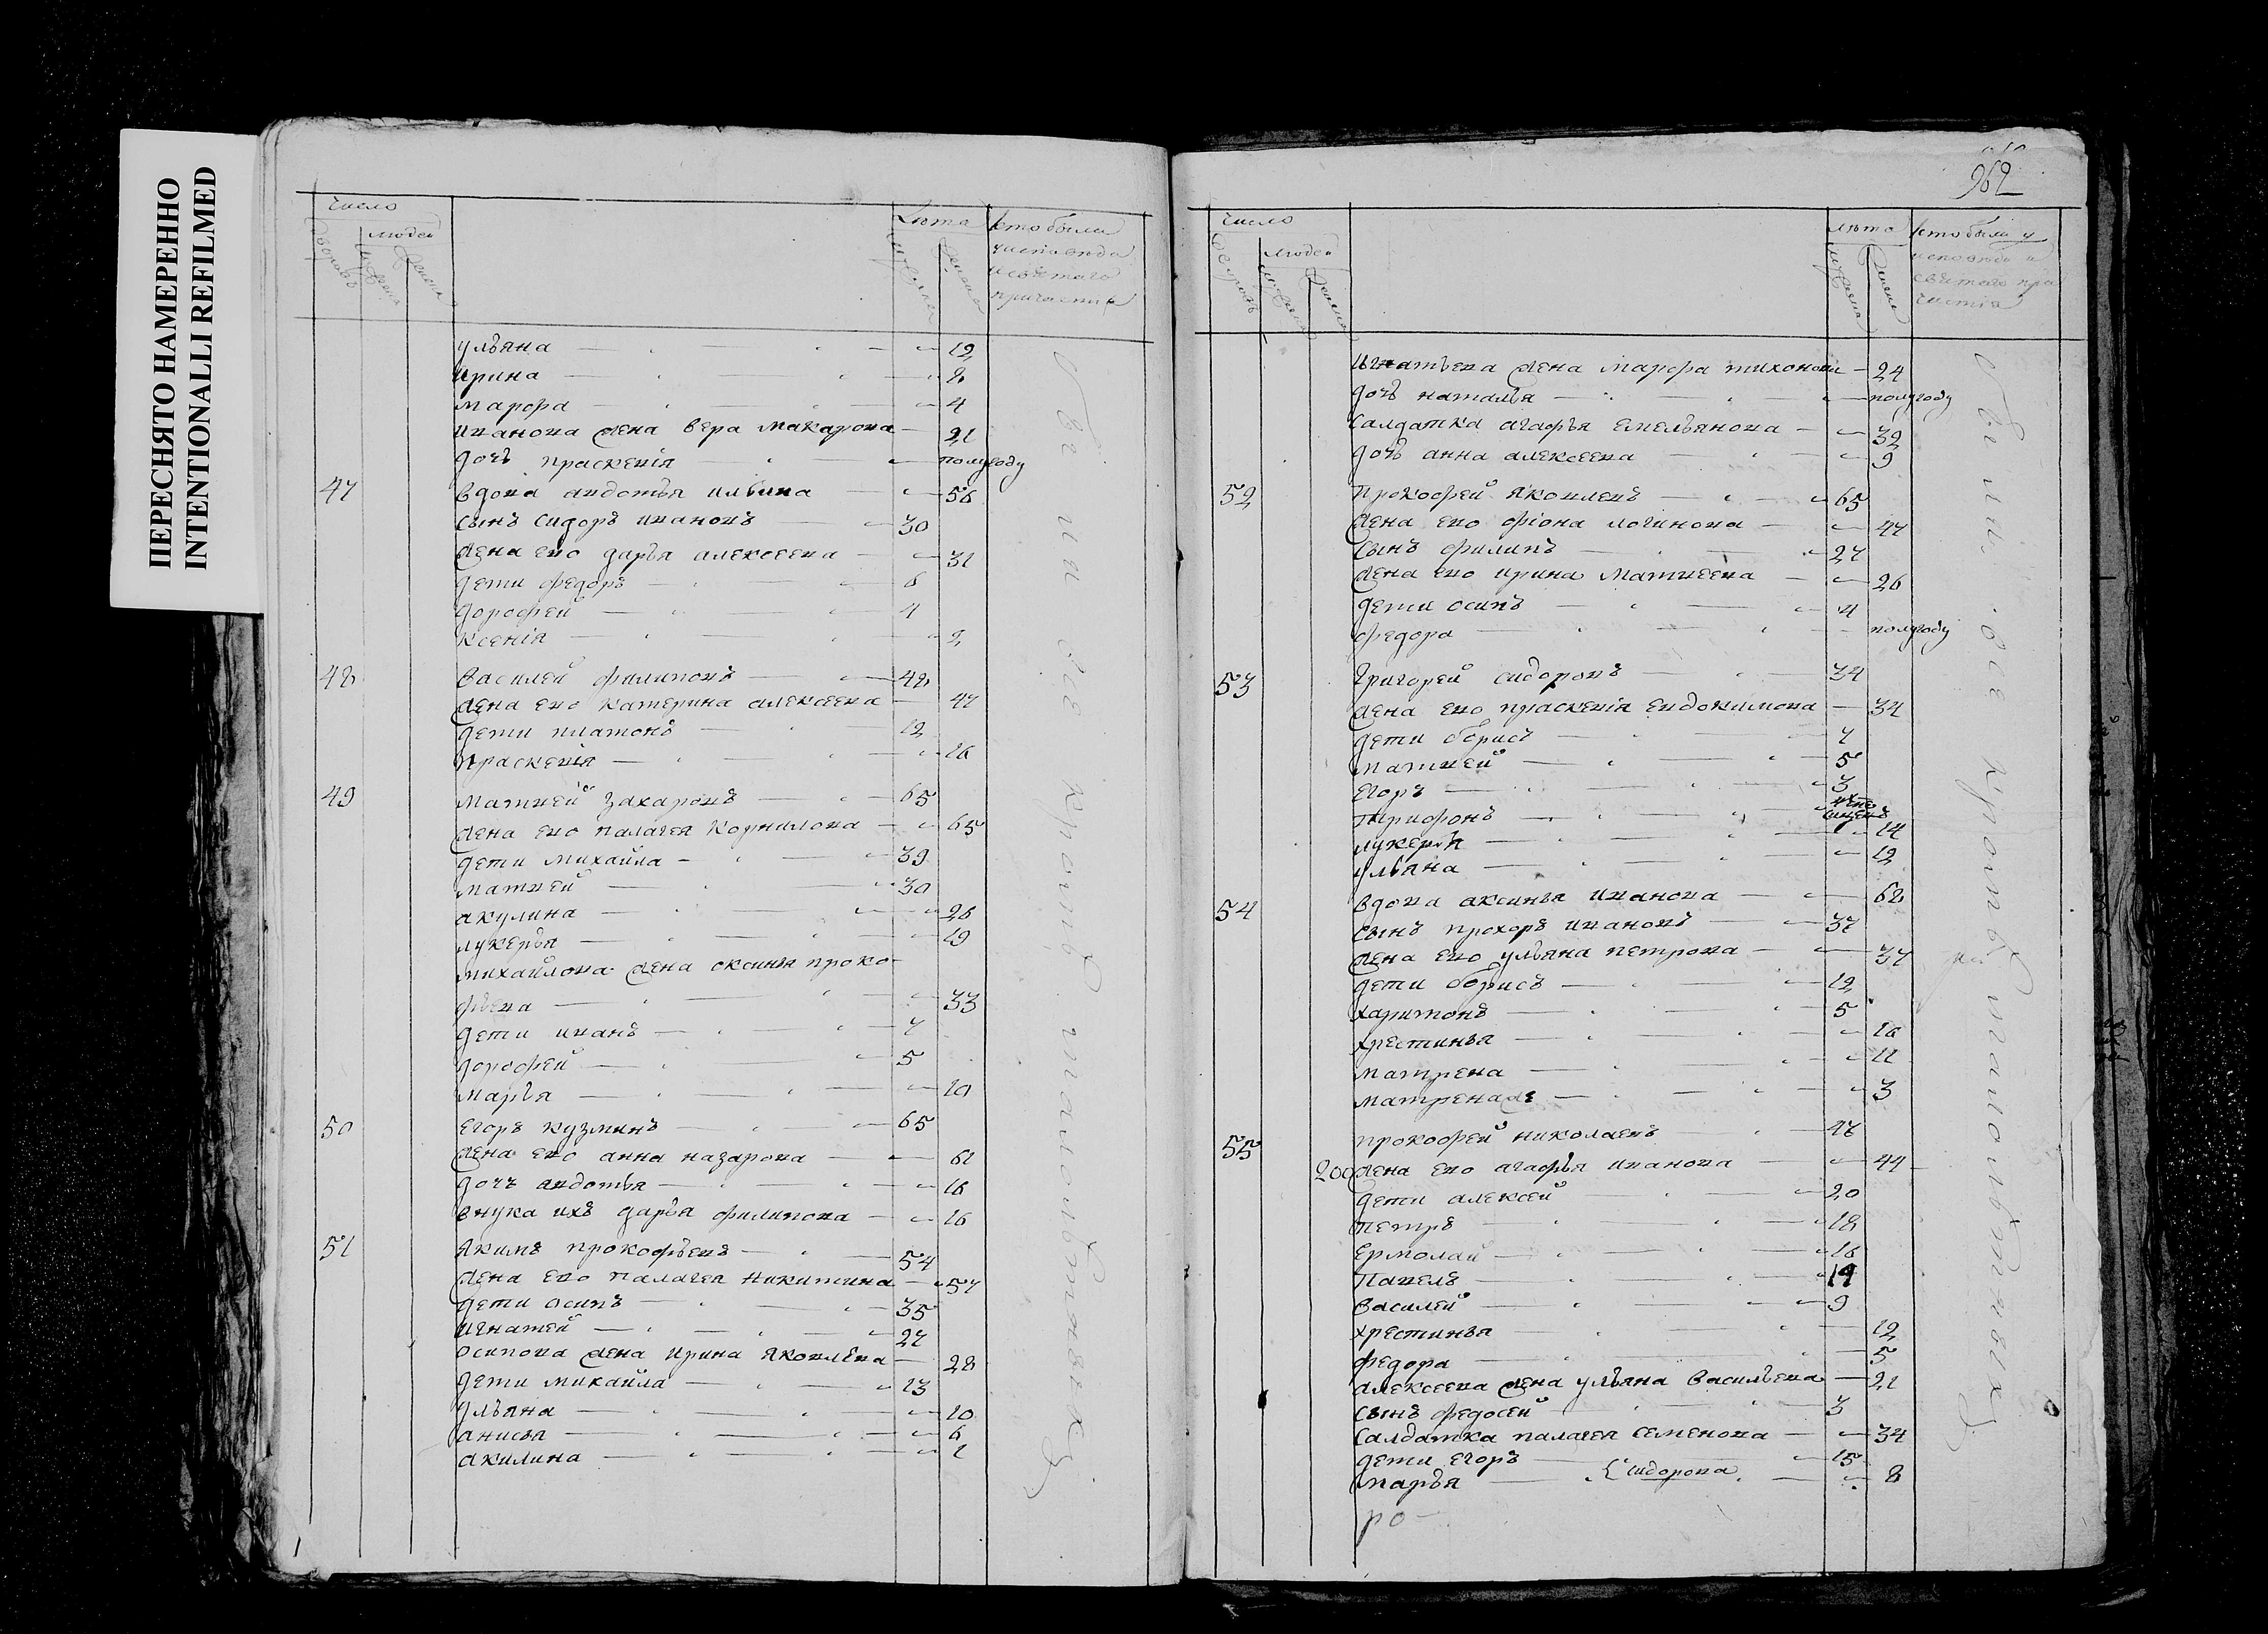 ПЕРЕСНЯТО НАМЕРЕННО
INTENTIONALLI REFILMED
число
людей
Лѣта
кто были
у исповѣди
и святаго
причастия
ульяна 12
ирина 8
марфа 4
иванова жена вера макарова 21
дочь прасковія полугоду
47 вдова авдотья ильина 56
сынъ сидоръ ивановъ 30
жена ево дарья алексеева 31
дети федоръ 6
дорофей 4
ксенія 2
48 василей филиповъ 48
жена ево катерина алексеева 47
дети платонъ 12
прасковія 16
49 матвей захаровъ 65
жена ево палагея корнилова 65
дети михайла 39
матвей 30
акулина 26
лукерья 19
михайлова жена оксинья проко-
фьева 33
дети иванъ 7
дорофей 5
марья 10
50 егоръ кузминъ 65
жена ево анна назарова 61
дочь авдотья 16
внука ихъ дарья филипова 16
51 якимъ прокофьевъ 54
жена ево палагея никитина 57
дети осипъ 35
игнатей 27
осипова жена ирина яковлева 28
дети михайла 13
ульяна 10
анисья 6
акилина 1
962
число
людей
лѣта
кто были у
исповѣди и
святаго при
частія
игнатьева жена марфа тихонова 24
дочь наталья полугоду
салдатка агафья емельянова 32
дочь анна алексеева 9
52 прокофей яковлевъ 65
жена ево фіона логинова 47
сынъ филипъ 27
жена ево ирина матвеева 26
дети осипъ 4
федора полугоду
53 григорей сидоровъ 34
жена ево прасковія евдокимова 34
дети борисъ 7
матвей 5
егоръ 3
трифонъ
лукерья 14
ульяна 12
54 вдова аксинья иванова 68
сынъ прохоръ ивановъ 37
жена ево ульяна петрова 37
дети борисъ 12
харитонъ 5
хрестинья 16
матрена 11
матренаже 3
55 прокофей николаевъ 47
200 жена ево агафья иванова 44
дети алексей 20
петръ 18
ермолай 16
павелъ 14
василей 9
хрестинья 12
федора 5
алексеева жена ульяна васильева 21
сынъ федосей 3
салдатка палагея семенова 34
дети егоръ 15
марья сидорова 8
ро-